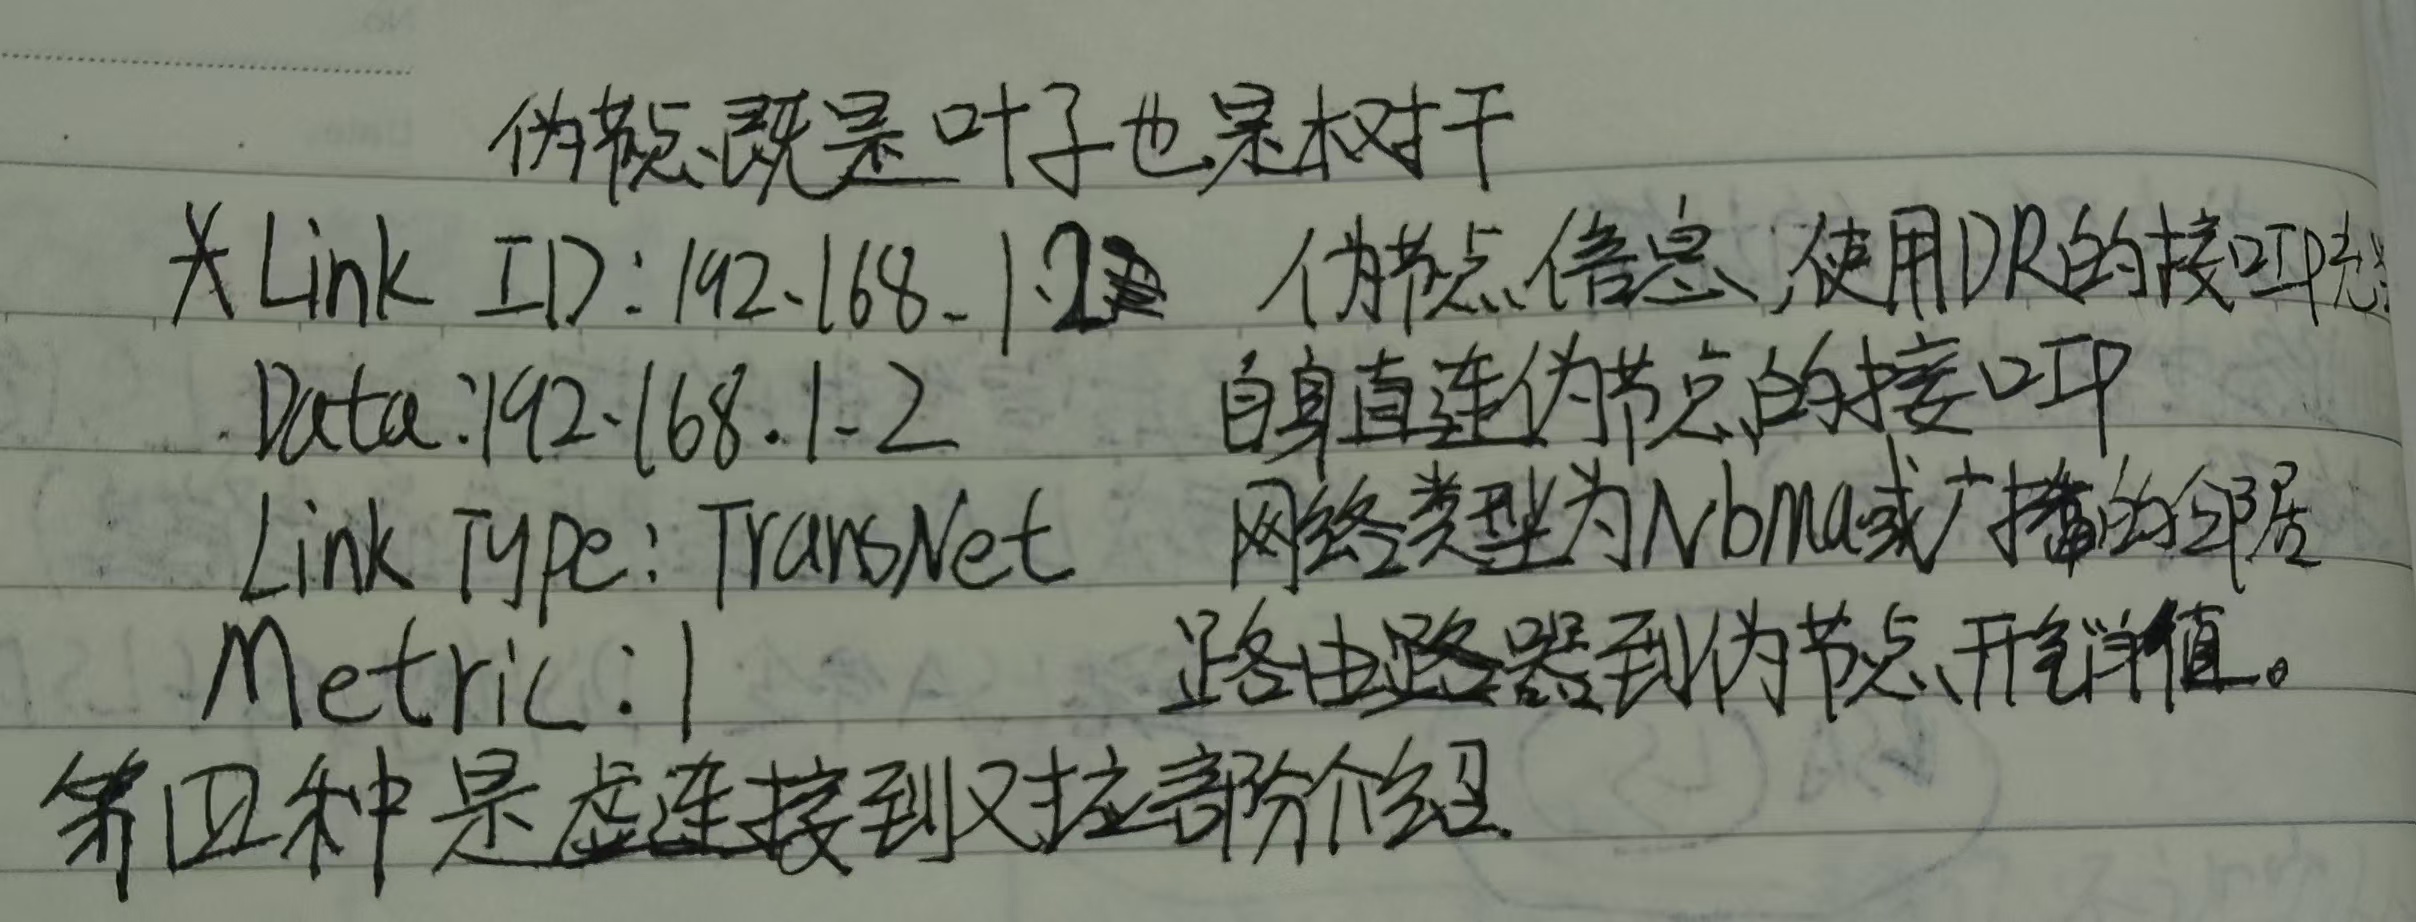 伪节点既是叶子也是树干
*Link ID:192.168.1.2 伪节点信息,使用DR的接口IP
Data:192.168.1.2 自身直连伪节点的接口IP
Link Type: TransNet 网络类型为Nbma或广播的邻居
Metric:1 路由路器到伪节点开销值。
第四种是虚连接到对应部份介绍.